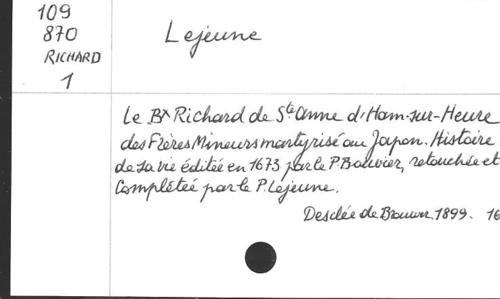 109
870
RICHARD
1
Lejeune
Le Bx Richard de Ste Anne d'Ham-sur-Heure
des Frères Mineurs martyrisé au Japon. Histoire
de sa vie éditée en 1673 par le P. Bouvier, retouchée et
complétée par le P. Lejeune.
Desclée de Brouwer 1899. 16